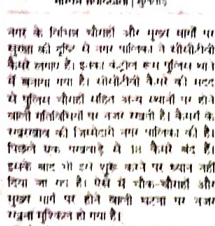 नगर के विभिन्न चौराहों और मुख्य मार्ग पर
सुरक्षा की दृष्टि से नगर पालिका ने सीसीटीवी
कैमरे लगाए हैं। इनका कंट्रोल रूम पुलिस थाने
में बनाया गया है। सीसीटीवी कैमरे की मदद
से पुलिस चौराहों सहित अन्य स्थानों पर होने
वाली गतिविधियों पर नजर रखती है। कैमरों के
रखरखाव की जिम्मेदारी नगर पालिका की है।
पिछले एक पखवाड़े से कैमरे बंद हैं।
इसके बाद भी इन्हें शुरू करने पर ध्यान नहीं
दिया जा रहा है। ऐसे में चौक-चौराहों और
मुख्य मार्ग पर होने वाली घटना पर नजर
रखना मुश्किल हो गया है।